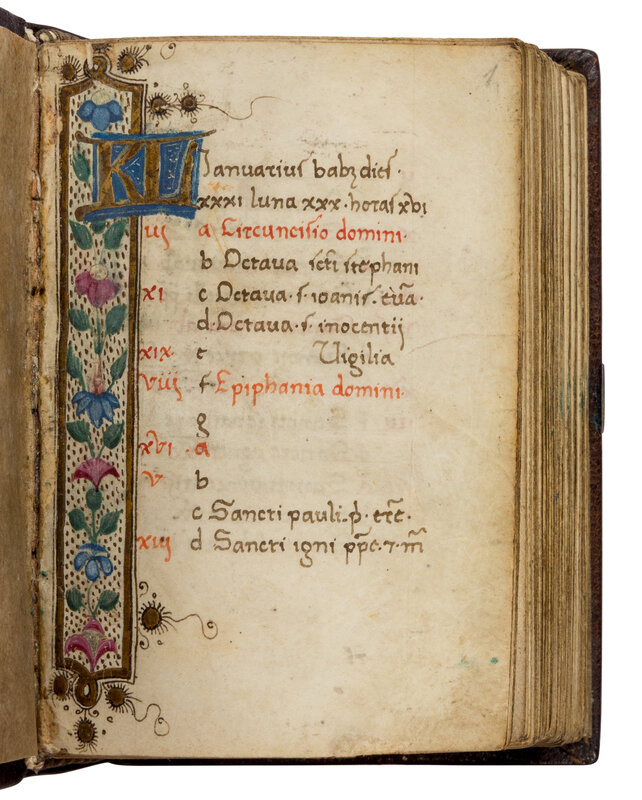 1
KL Ianuarius habꝫ dies.
xxxi luna xxx. horas xvi
iij a Circuncisio domini.
b Octaua scti stephani
xi c Octaua. s. ioanis. eua.
d. Octaua. s. inocentij
xix. e Uigilia
viij f Epiphania domini.
g
xvi. a
v b
c Sancti pauli. p. ere.
xiij d Sancti igni ppe. 7. m